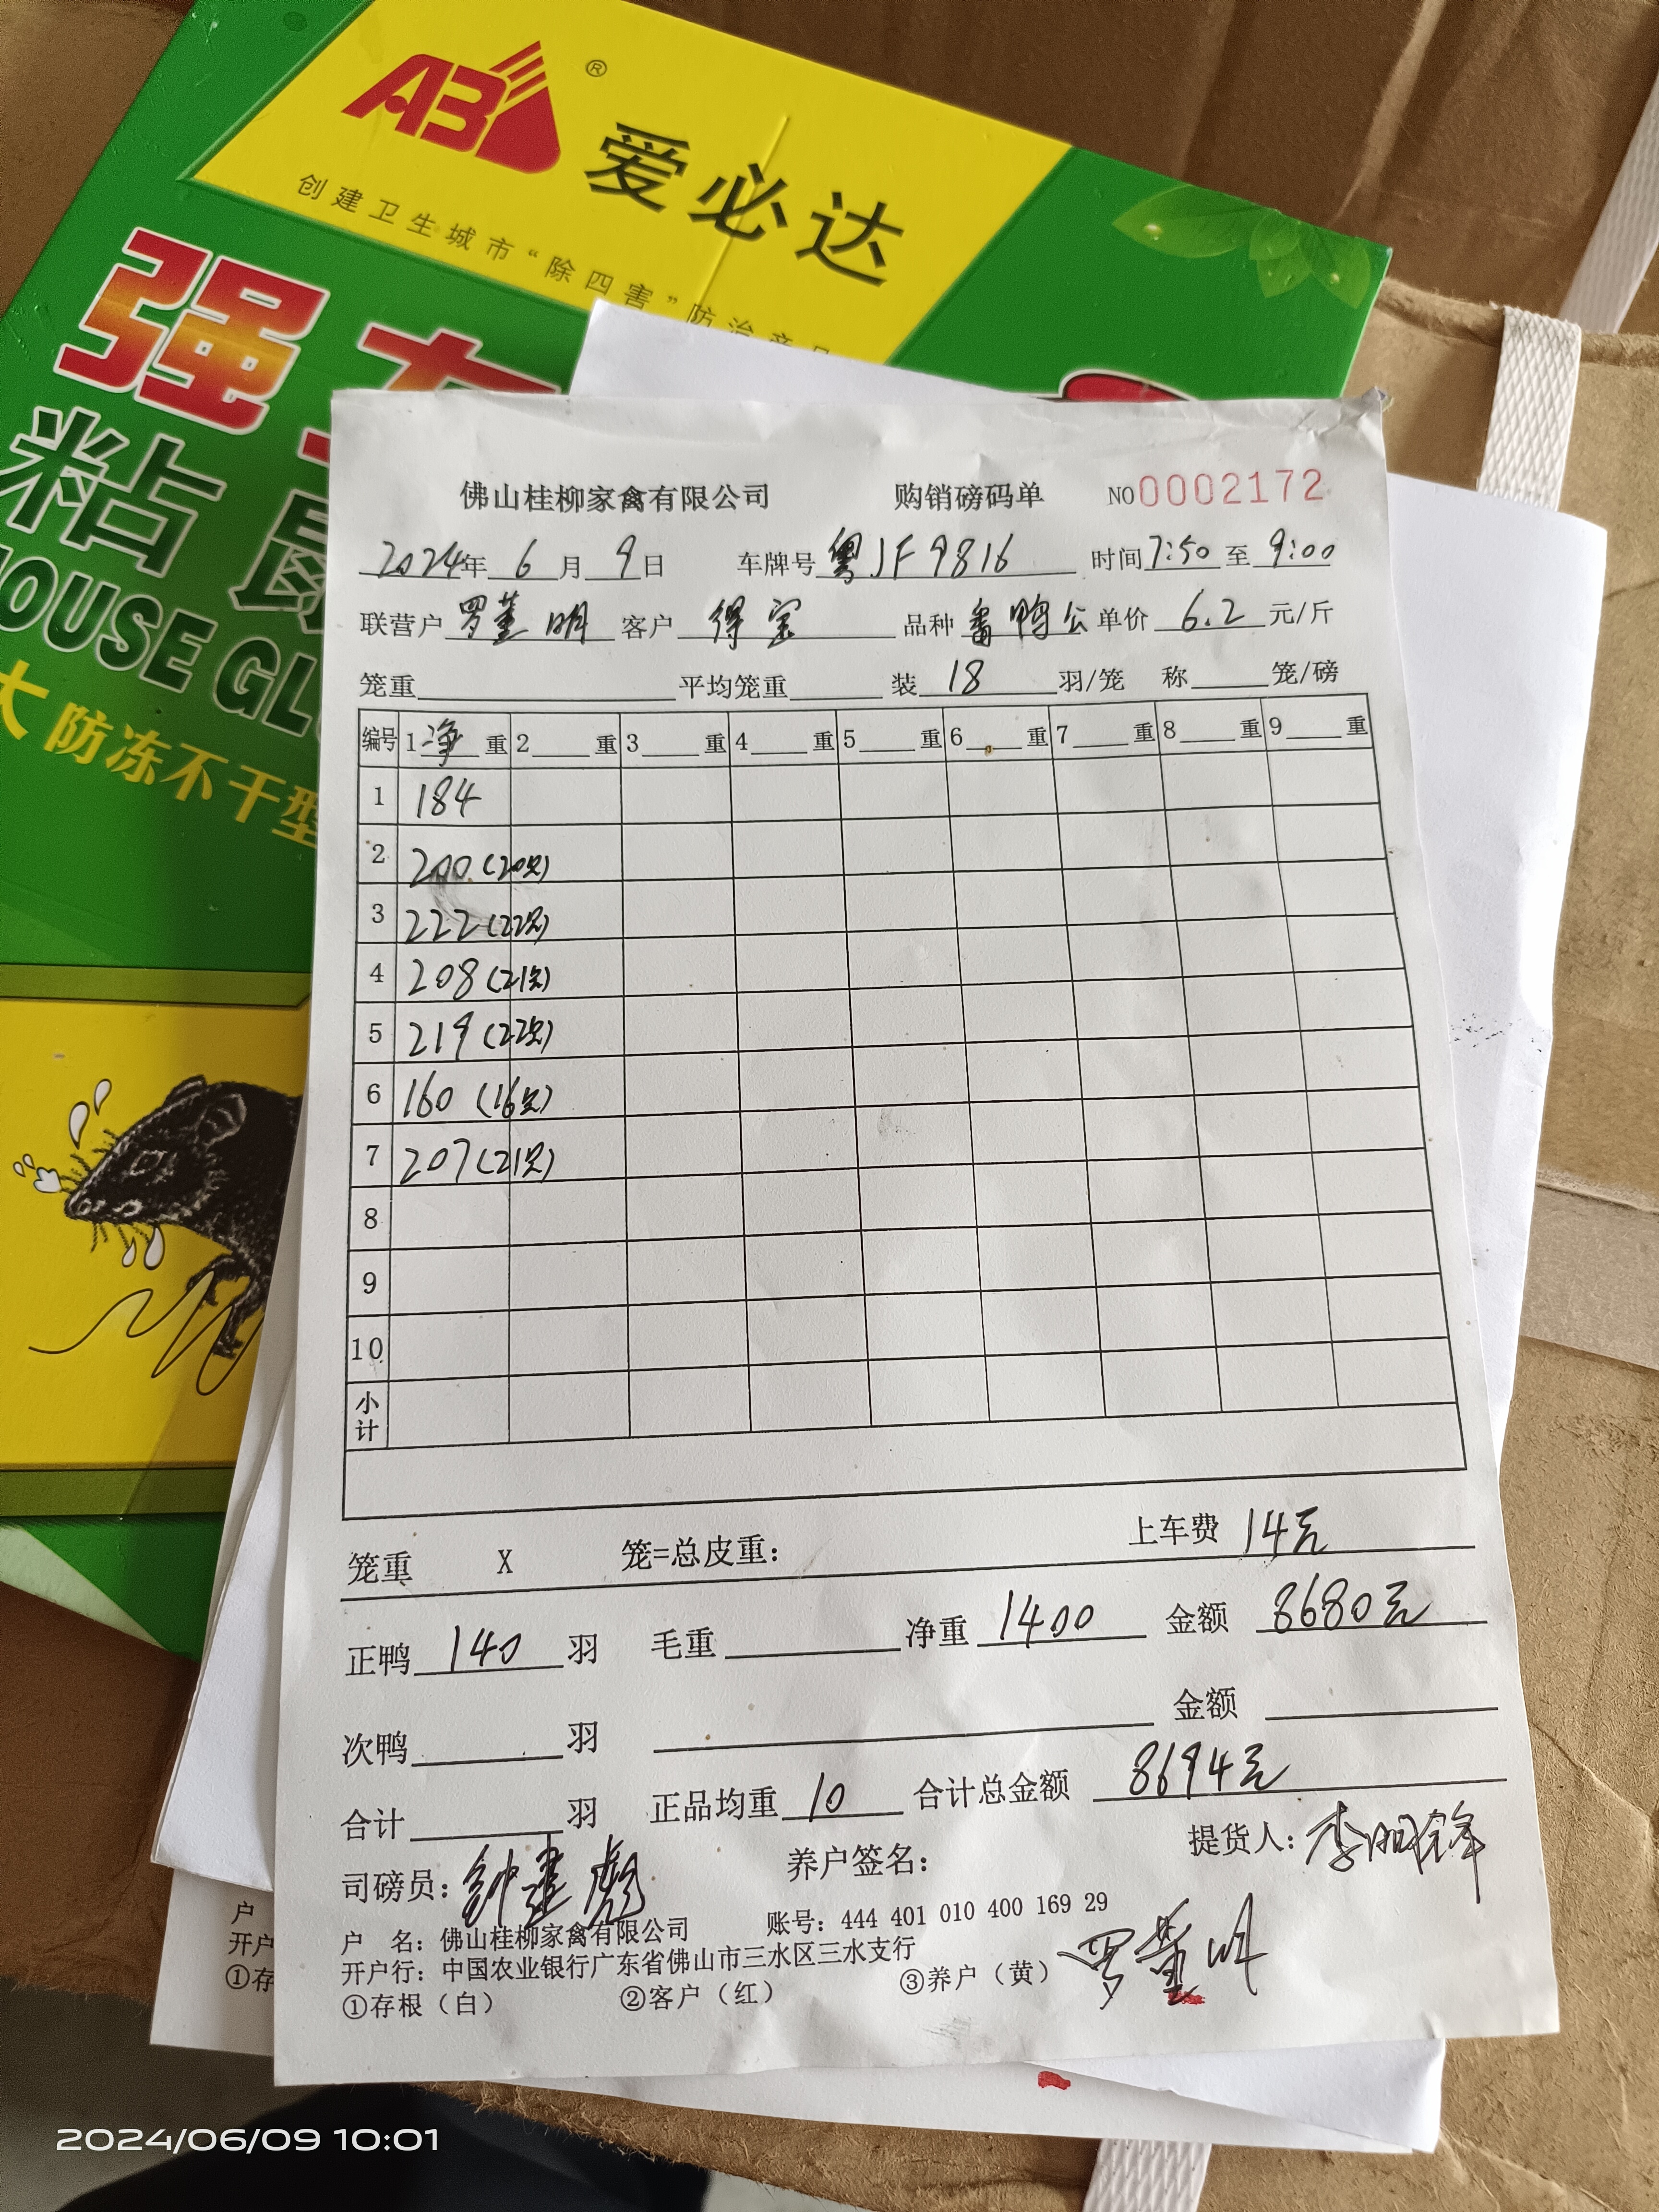 AB ®
爱必达
创建卫生城市“除四害”防治产品
强
粘鼠
MOUSE GLU
大 防冻不干型
佛山桂柳家禽有限公司 购销磅码单 NO 0002172
2024年 6 月 9 日 车牌号 粤JF9816 时间 7:50 至 9:00
联营户 罗董明 客户 得宝 品种 番鸭公 单价 6.2 元/斤
笼重 平均笼重 装 18 羽/笼 称 笼/磅
编号 1 净 重 2 重 3 重 4 重 5 重 6 重 7 重 8 重 9 重
1 184
2 200 (20只)
3 222 (22只)
4 208 (21只)
5 219 (22只)
6 160 (16只)
7 207 (21只)
8
9
10
小计
笼重 X 笼=总皮重: 上车费 14元
正鸭 140 羽 毛重 净重 1400 金额 8680元
次鸭 羽 金额
合计 羽 正品均重 10 合计总金额 8694元
司磅员: 钟建彪 养户签名: 提货人: 李明锋
户 名: 佛山桂柳家禽有限公司 账号: 444 401 010 400 169 29
开户行: 中国农业银行广东省佛山市三水区三水支行 罗董明
①存根（白） ②客户（红） ③养户（黄）
户
开户
①存
2024/06/09 10:01